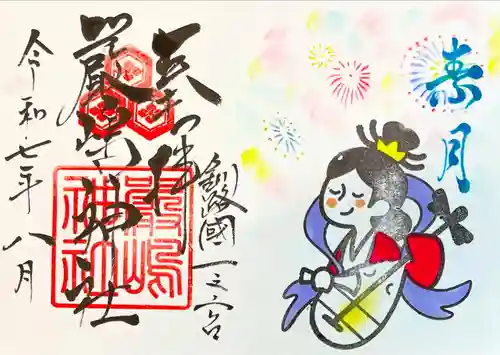 葉月
奉拝
釧路國一之宮
嚴島神社
嚴嶋
神社
令和七年八月